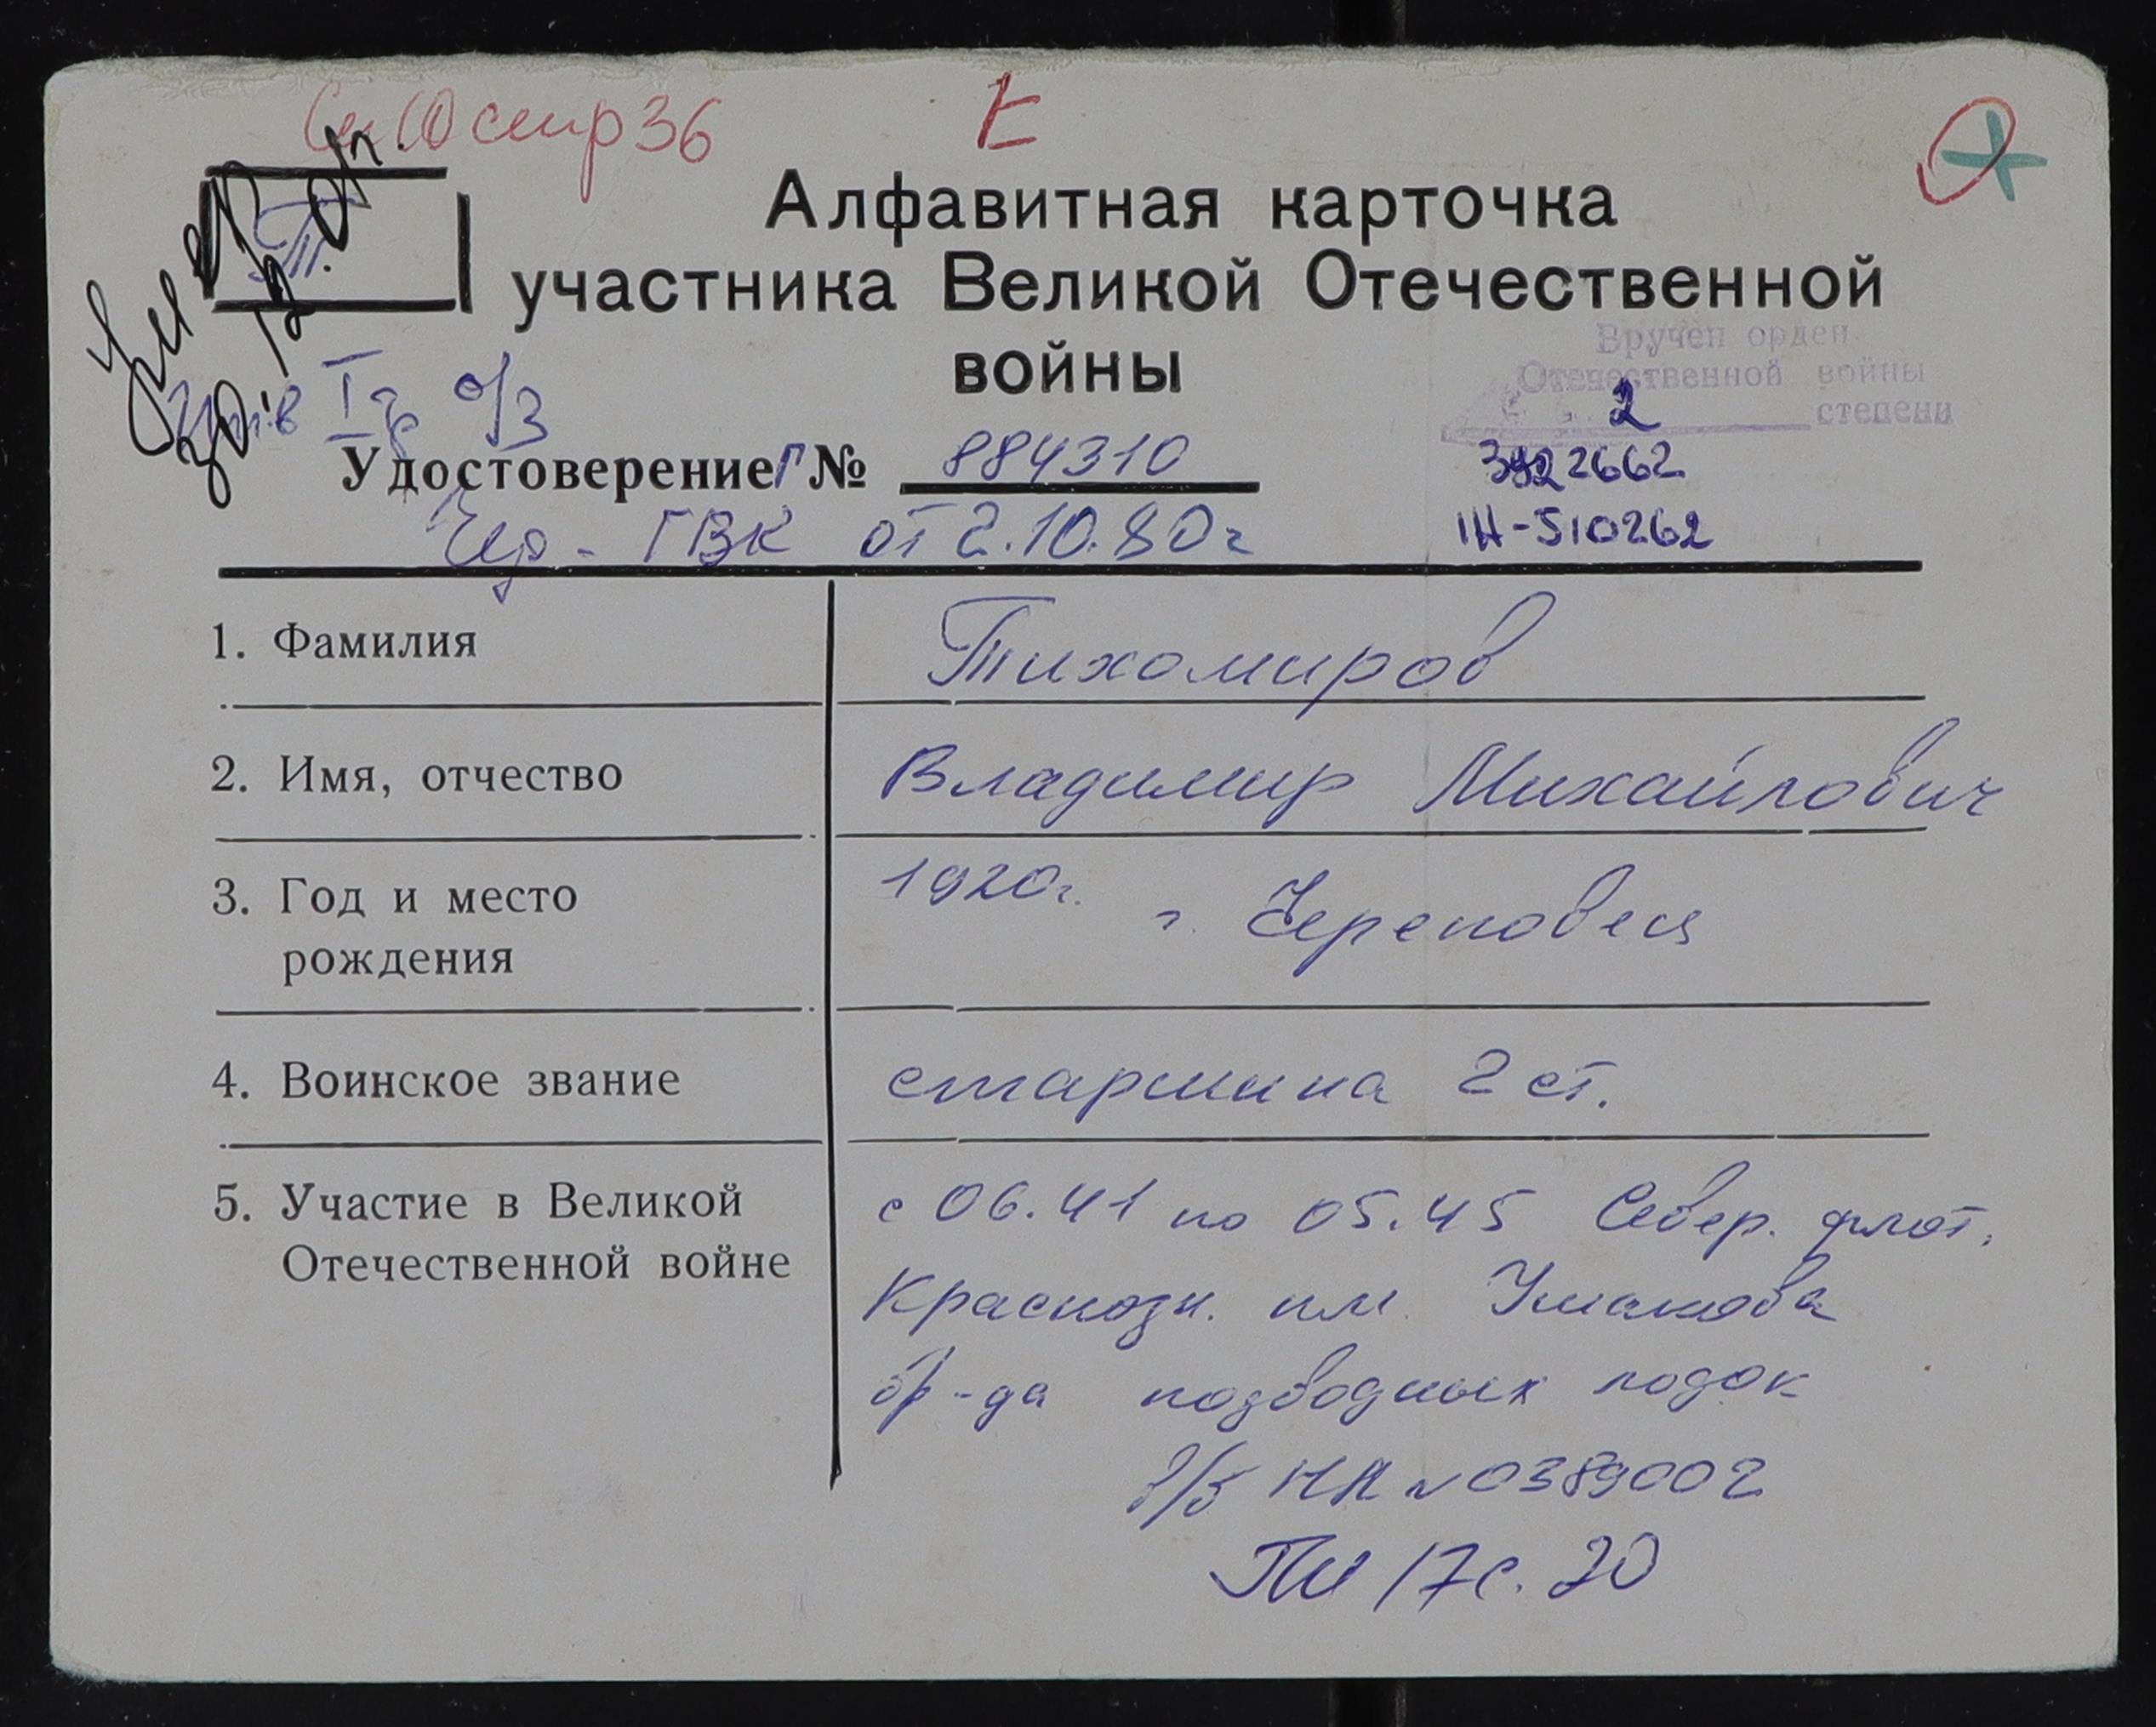 стр 36
Алфавитная карточка
участника Великой Отечественной
войны
Вручен орден
Отечественной войны
2 степени
Удостоверение Г № 884310
3922662
Чер - ГВК от 2.10.80г
1Н-510262
1. Фамилия Тихомиров
2. Имя, отчество Владимир Михайлович
3. Год и место 1920г. г. Череповец
рождения
4. Воинское звание старшина 2 ст.
5. Участие в Великой с 06.41 по 05.45 Север. флот.
Отечественной войне Краснозн. им. Ушакова
бр-да подводных лодок
в/б НА № 0389002
17 с. 20